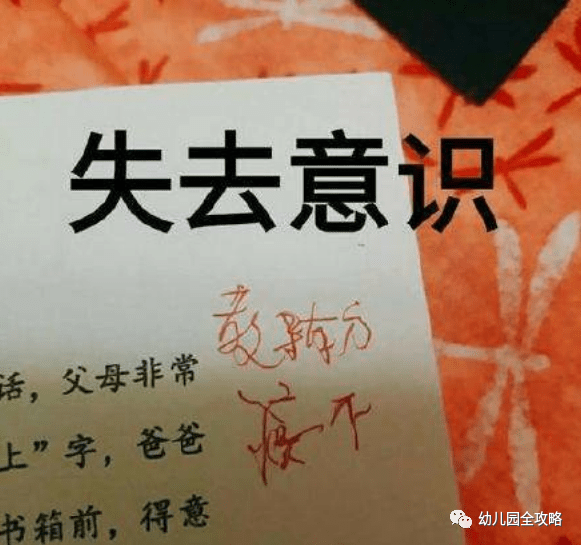 失去意识
教导有方
话，父母非常
上”字，爸爸
书箱前，得意
幼儿园全攻略